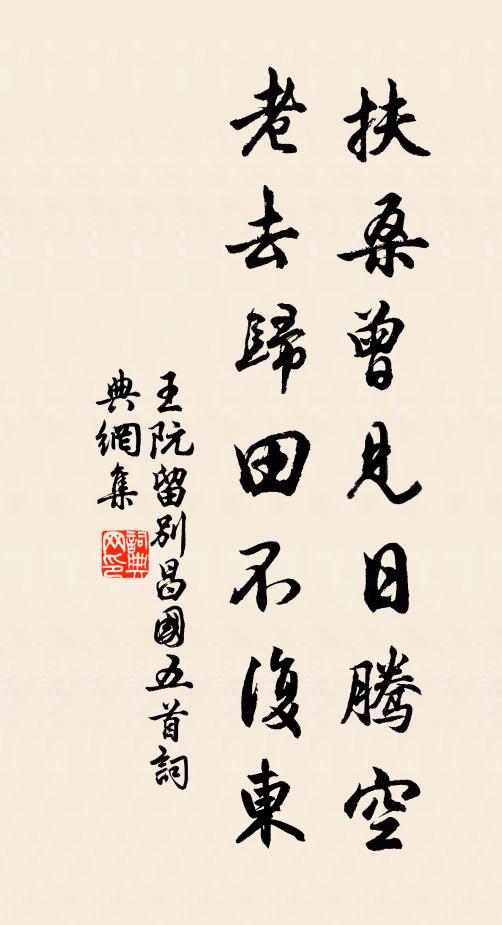 扶桑曾見日騰空
老去歸田不復東
王阮留別昌國五首詞
典網集
詞典
网印